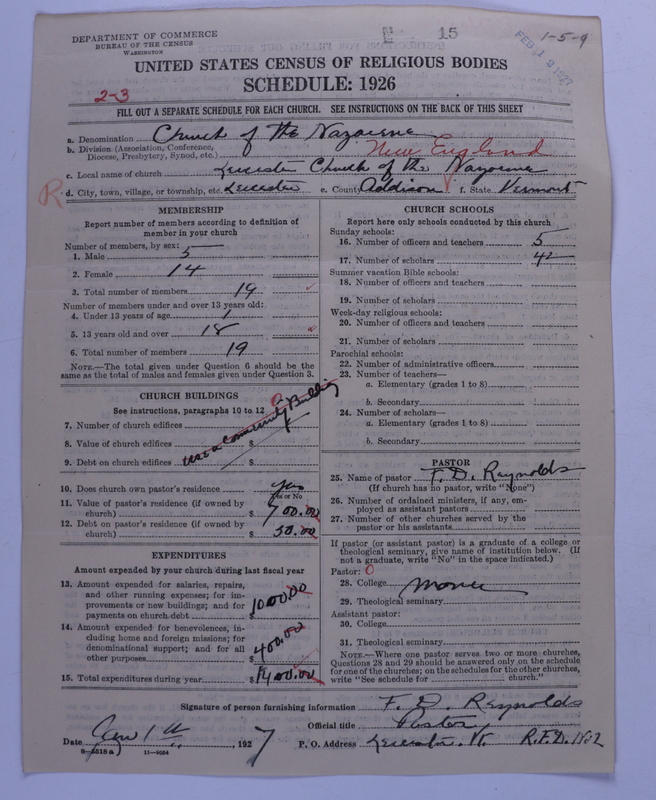 DEPARTMENT OF COMMERCE
BUREAU OF THE CENSUS
WASHINGTON
15
FEB 1927
1-5-9
UNITED STATES CENSUS OF RELIGIOUS BODIES
SCHEDULE: 1926
2-3
FILL OUT A SEPARATE SCHEDULE FOR EACH CHURCH. SEE INSTRUCTIONS ON THE BACK OF THIS SHEET
a. Denomination Church of the Nazarene
b. Division (Association, Conference, Diocese, Presbytery, Synod, etc.) New England
c. Local name of church Leicester Church of the Nazarene
R d. City, town, village, or township, etc. Leicester e. County Addison f. State Vermont
MEMBERSHIP
Report number of members according to definition of member in your church
Number of members, by sex:
1. Male 5
2. Female 14
3. Total number of members 19
Number of members under and over 13 years old:
4. Under 13 years of age 1
5. 13 years old and over 18
6. Total number of members 19
NOTE.—The total given under Question 6 should be the same as the total of males and females given under Question 3.
CHURCH BUILDINGS
See instructions, paragraphs 10 to 12
7. Number of church edifices
8. Value of church edifices $
9. Debt on church edifices $
Use a Community Building
10. Does church own pastor's residence yes
Yes or No
11. Value of pastor's residence (if owned by church) $ 700.00
12. Debt on pastor's residence (if owned by church) $ 50.00
EXPENDITURES
Amount expended by your church during last fiscal year
13. Amount expended for salaries, repairs, and other running expenses; for improvements or new buildings; and for payments on church debt $ 1000.00
14. Amount expended for benevolences, including home and foreign missions; for denominational support; and for all other purposes $ 400.00
15. Total expenditures during year $ 1400.00
CHURCH SCHOOLS
Report here only schools conducted by this church
Sunday schools:
16. Number of officers and teachers 5
17. Number of scholars 42
Summer vacation Bible schools:
18. Number of officers and teachers
19. Number of scholars
Week-day religious schools:
20. Number of officers and teachers
21. Number of scholars
Parochial schools:
22. Number of administrative officers
23. Number of teachers—
a. Elementary (grades 1 to 8)
b. Secondary
24. Number of scholars—
a. Elementary (grades 1 to 8)
b. Secondary
PASTOR
25. Name of pastor F. D. Reynolds
(If church has no pastor, write "None")
26. Number of ordained ministers, if any, employed as assistant pastors
27. Number of other churches served by the pastor or his assistants
If pastor (or assistant pastor) is a graduate of a college or theological seminary, give name of institution below. (If not a graduate, write "No" in the space indicated.)
Pastor: 0
28. College None
29. Theological seminary
Assistant pastor:
30. College
31. Theological seminary
NOTE.—Where one pastor serves two or more churches, Questions 28 and 29 should be answered only on the schedule for one of the churches; on the schedules for the other churches, write "See schedule for church."
Signature of person furnishing information F. D. Reynolds
Official title Pastor
Date Jan 1st, 1927 P. O. Address Leicester, Vt. R.F.D. No 2
8-5518a 11-9054